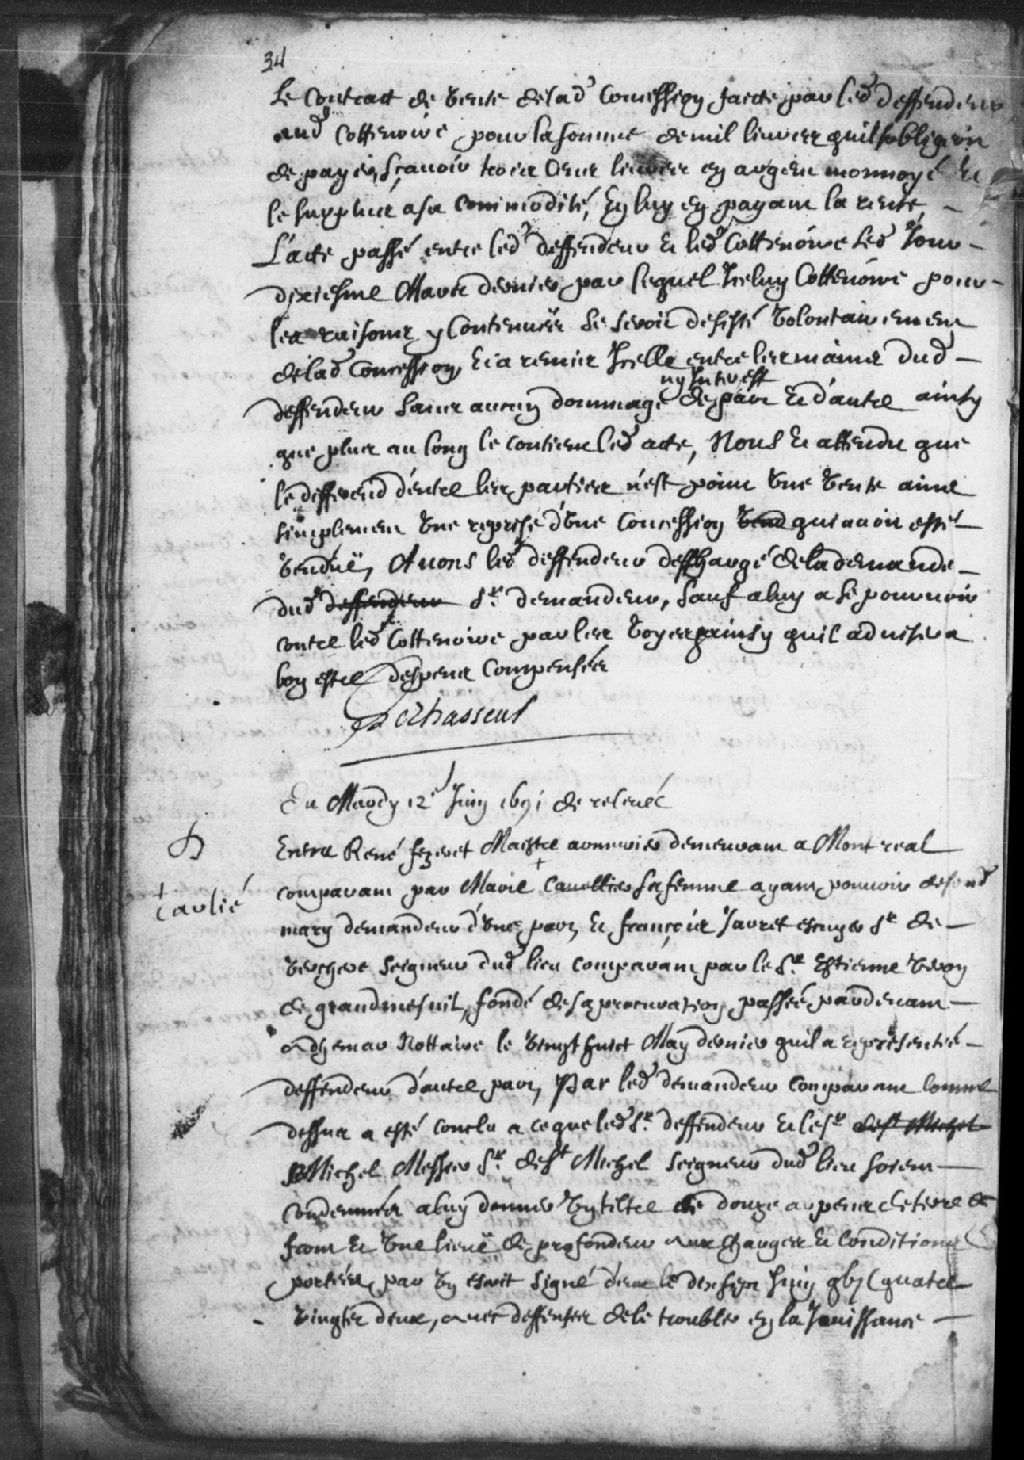 34
Le Contract de vente de lad Concession faicte par led deffendeur
aud Cottenoire pour la somme de mil livres quil sobligeoit
de payer, Sçavoir trois Cens livres en argent monnoyé Et
le surplus a sa Commodité, En luy en payant la rente,
L'acte passé entre led deffendeur et led Cottenoire led Jour
dixiesme Mars dernier par lequel Iceluy Cottenoire pour
les raisons y Contenuës se seroit desisté volontairement
de lad Concession, Et a remise Icelle entre les mains dud
ny Interest
deffendeur sans aucun dommage de part et d'autre ainsy
que plus au long le contient led acte, Nous et attendu que
le differend d'entre les parties n'est point une vente ains
simplement une reprise d'une Concession vend qui avoit esté
venduë, Avons led deffendeur deschargé de la demande
dud deffendeur Sr. demandeur, sauf a luy a se pourvoir
contre led Cottenoire par les voyes ainsy quil advisera
bon estre despens Compensés
Dechasseur
Du Mardy 12e Juin 1691 de relevée
Entre René fezeret Maistre armurier demeurant a Montreal
comparant par Marie + Cavellier sa femme ayant pouvoir de sond
+ Carlié
mary demandeur d'une part, Et françois Jarret escuyer Sr. de
vercheres Seigneur dud lieu comparant par le Sr. Estienne veron
de grandmesnil, fondé de sa procuration passée pardevant
Adhemar Nottaire le vingt huict May dernier quil a representée
deffendeur d'autre part, Par led demandeur Comparant comme
dessus a esté conclu a ce que led Sr. deffendeur et le Sr. de St Michel
Michel Messier Sr. de St Michel Seigneur dud lieu soient
condemnés a luy donner un tiltre de douze arpens de terre de
front Et une lieuë de profondeur aux charges et conditions
portées, par un escrit signé d'eux le dix sept Juin gbjc quatre
vingts deux, avec deffenses de le troubler en la Jouissance